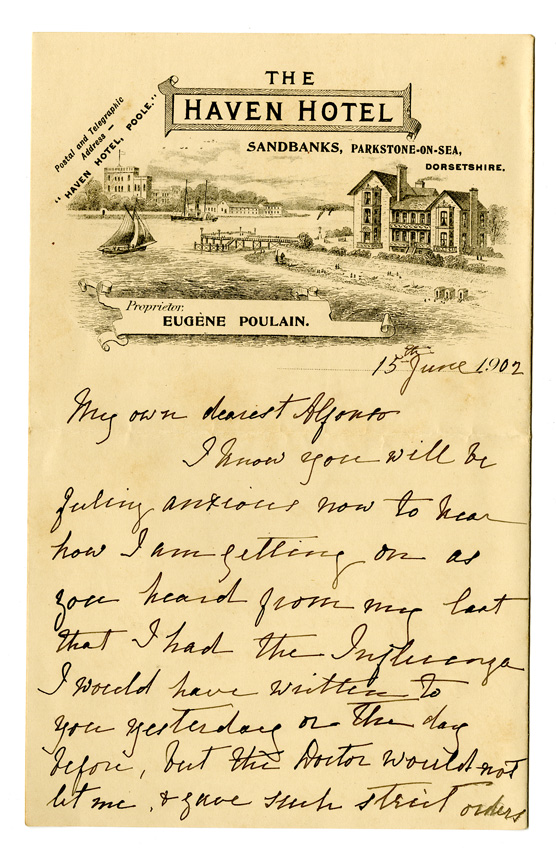 THE
HAVEN HOTEL
SANDBANKS, PARKSTONE-ON-SEA,
DORSETSHIRE.
Postal and Telegraphic
Address –
"HAVEN HOTEL, POOLE."
Proprietor,
EUGÈNE POULAIN.
15th June 1902
My own dearest Alfonso
I know you will be
feeling anxious now to hear
how I am getting on as
you heard from my last
that I had the Influenza
I would have written to
you yesterday or the day
before, but the Doctor would not
let me, & gave such strict orders